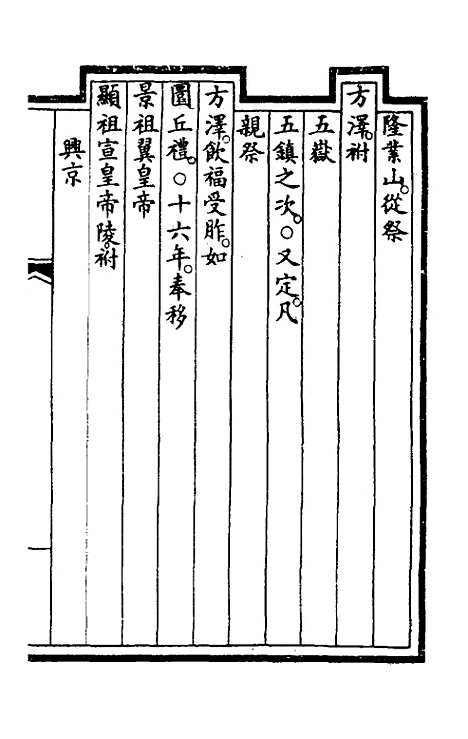 隆業山。從祭
方澤。祔
五嶽
五鎮之次。○又定。凡
親祭
方澤。飲福受胙。如
圜丘禮。○十六年。奉移
景祖翼皇帝
顯祖宣皇帝陵。祔
興京